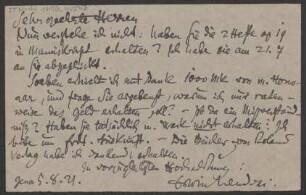 Sehr geehrte Herren
Nun verstehe ich nicht. Haben Sie die 2 Hefte op 19
in Manuskript erhalten? Ich habe sie am 21.7
an Sie abgeschickt.
Soeben erhielt ich mit Dank 1000 Mk von m. Honor
ar, und frage Sie ergebenst, warum ich nur
weise das Geld erhalten soll? – Ist da ein Mißverständ
nis? Haben Sie tatsächlich m. Werk nicht erhalten? Ich
bitte um Auskunft. – Die Bücher von Roland
Verlag habe ich dankend erhalten.
In vorzüglicher Hochachtung:
Jena 5.8.21. Erwin